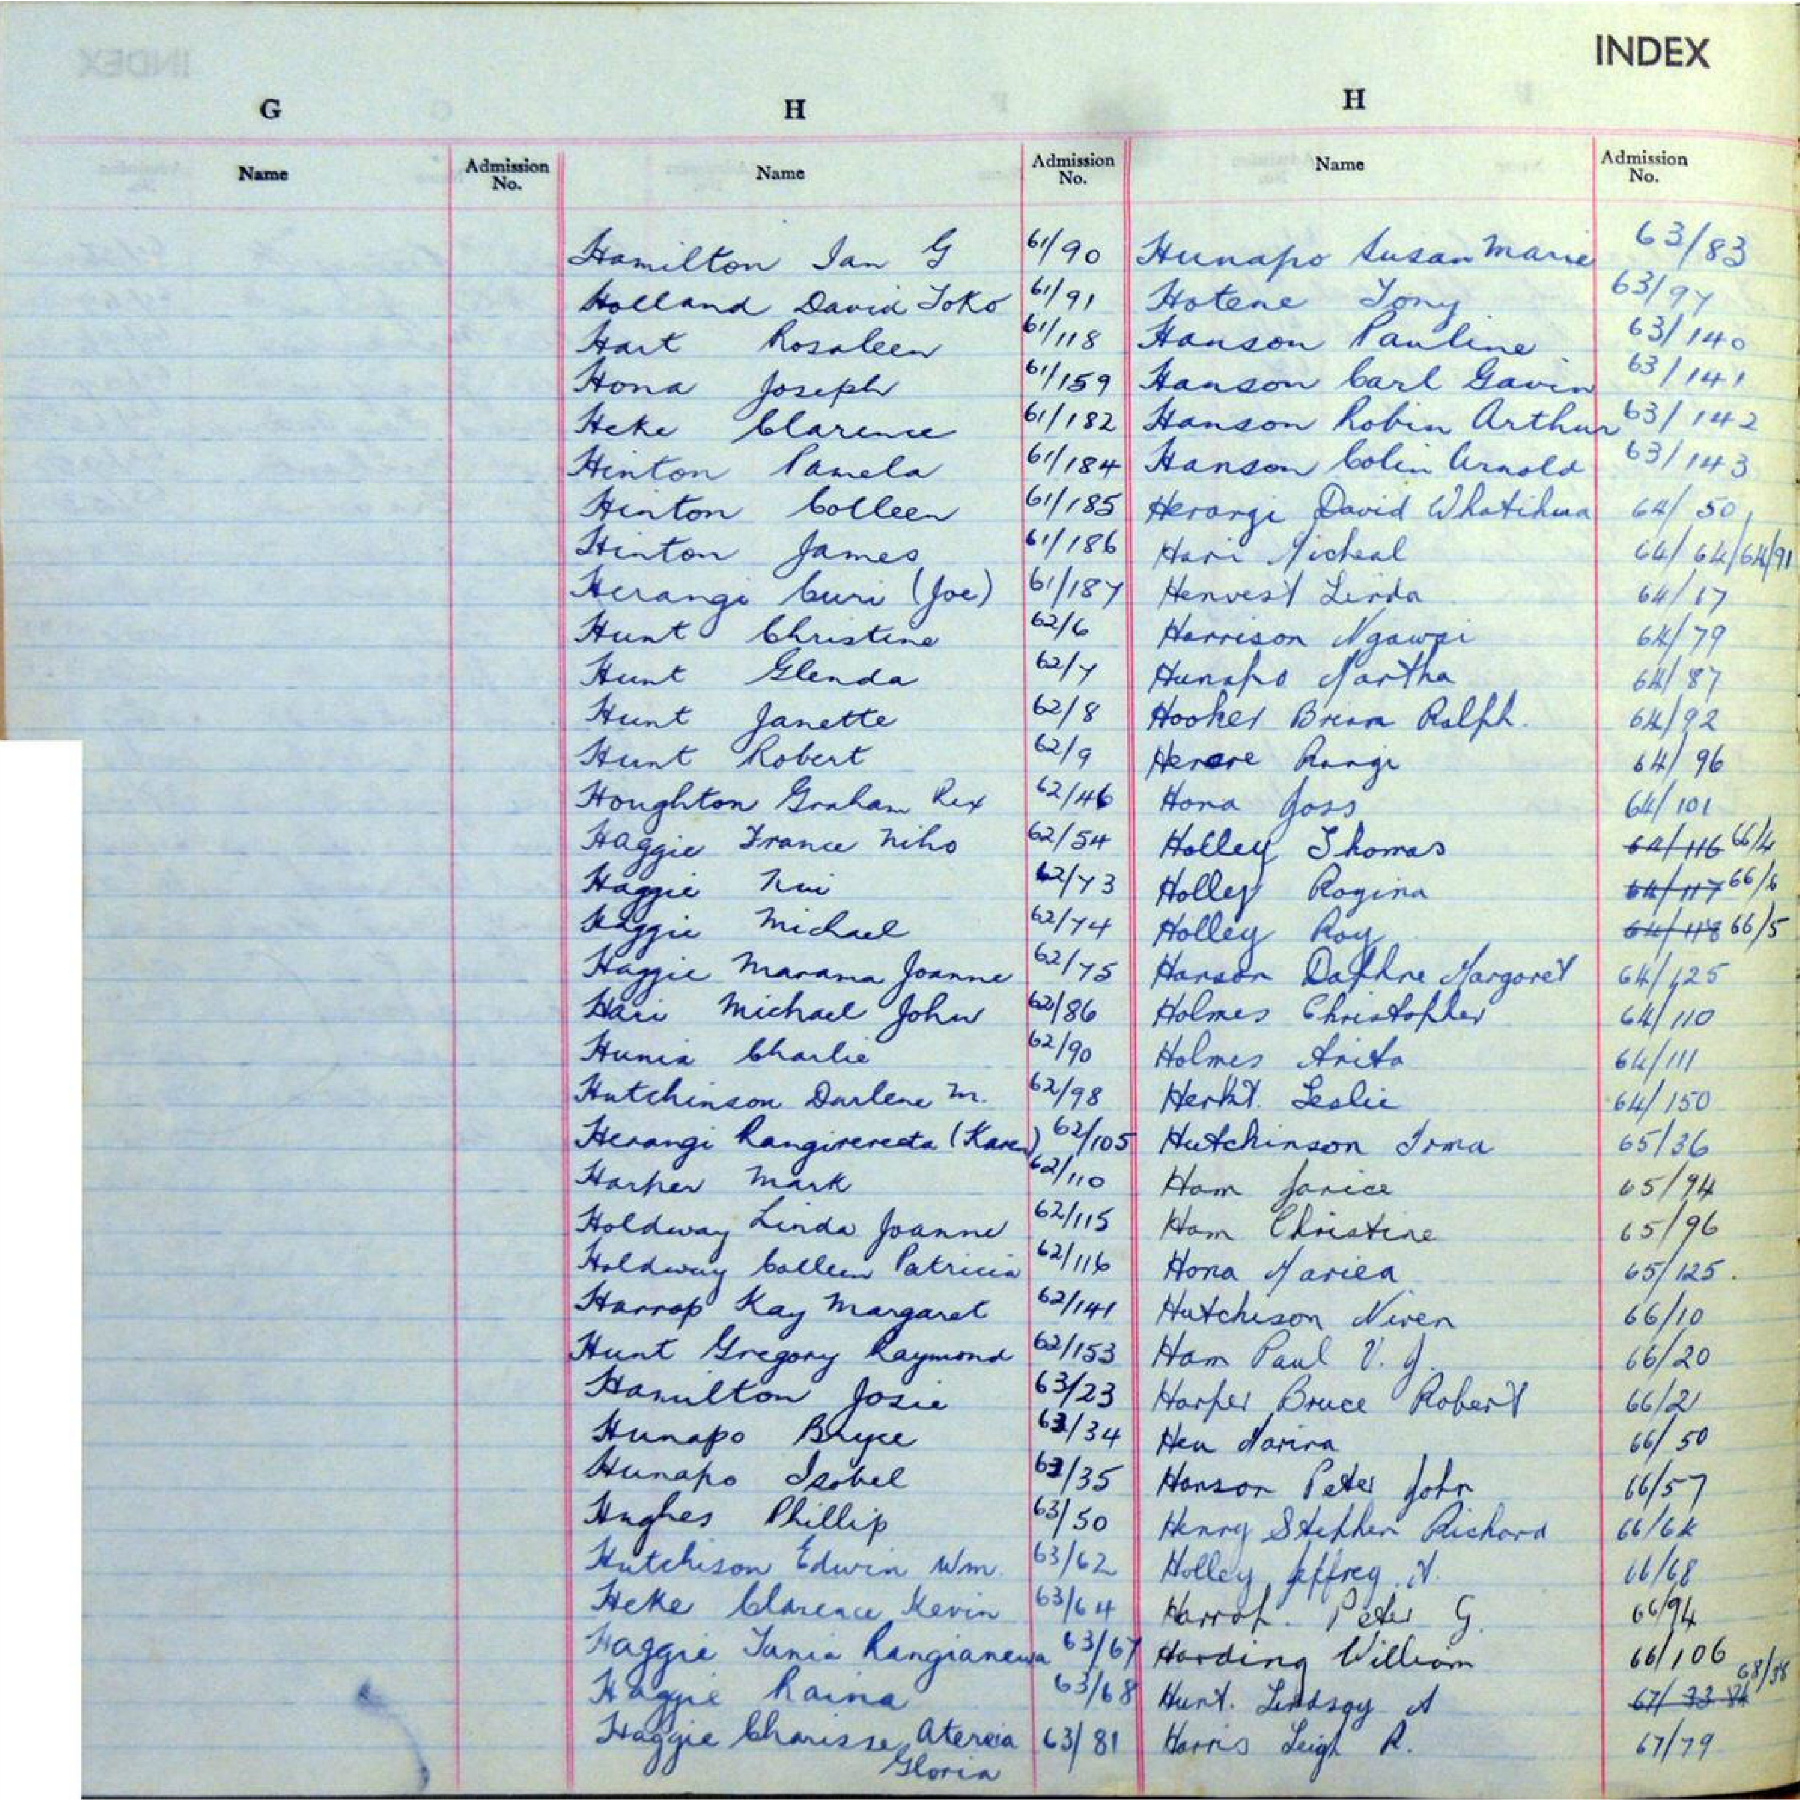 INDEX
G H H
Name Admission No. Name Admission No. Name Admission No.
Hamilton Ian G 61/90 Hunapo Susan Marie 63/83
Holland David Toko 61/91 Hotene Tony 63/97
Hart Rosaleen 61/118 Hanson Pauline 63/140
Hona Joseph 61/159 Hanson Carl Gavin 63/141
Heke Clarence 61/182 Hanson Robin Arthur 63/142
Hinton Pamela 61/184 Hanson Colin Arnold 63/143
Hinton Colleen 61/185 Herangi David Whatihua 64/50
Hinton James 61/186 Hari Micheal 64/64/64/91
Herangi Curi (Joe) 61/187 Henvest Linda 64/17
Hunt Christine 62/6 Harrison Ngawai 64/79
Hunt Glenda 62/7 Hunapo Martha 64/87
Hunt Janette 62/8 Hooker Brian Ralph. 64/92
Hunt Robert 62/9 Herere Rangi 64/96
Houghton Graham Rex 62/46 Hona Joss 64/101
Haggie France Niho 62/54 Holley Thomas 64/116 66/4
Haggie Nui 62/73 Holley Rogina 64/117 66/6
Haggie Michael 62/74 Holley Roy 64/118 66/5
Haggie Marama Joanne 62/75 Hanson Daphne Margaret 64/125
Hari Michael John 62/86 Holmes Christopher 64/110
Hunia Charlie 62/90 Holmes Anita 64/111
Hutchinson Darlene M. 62/98 Herkt. Leslie 64/150
Herangi Rangirereeta (Karen) 62/105 Hutchinson Irma 65/36
Harper Mark 62/110 Ham Janice 65/94
Holdway Linda Joanne 62/115 Ham Christine 65/96
Holdway Colleen Patricia 62/116 Hona Mariea 65/125.
Harrop Kay Margaret 62/141 Hutchison Niven 66/10
Hunt Gregory Raymond 62/153 Ham Paul V. J. 66/20
Hamilton Josie 63/23 Harper Bruce Robert 66/21
Hunapo Bryce 63/34 Heu Marina 66/50
Hunapo Isobel 63/35 Hanson Peter John 66/57
Hughes Phillip 63/50 Henry Stephen Richard 66/64
Hutchison Edwin Wm. 63/62 Holley Jeffrey N. 66/68
Heke Clarence Kevin 63/64 Harrop. Peter G. 66/94
Haggie Tania Rangianewa 63/67 Harding William 66/106
Haggie Raina 63/68 Hunt. Lindsay A 67/33 68/38
Haggie Charisse Atereia 63/81 Harris Leigh R. 67/79
Gloria